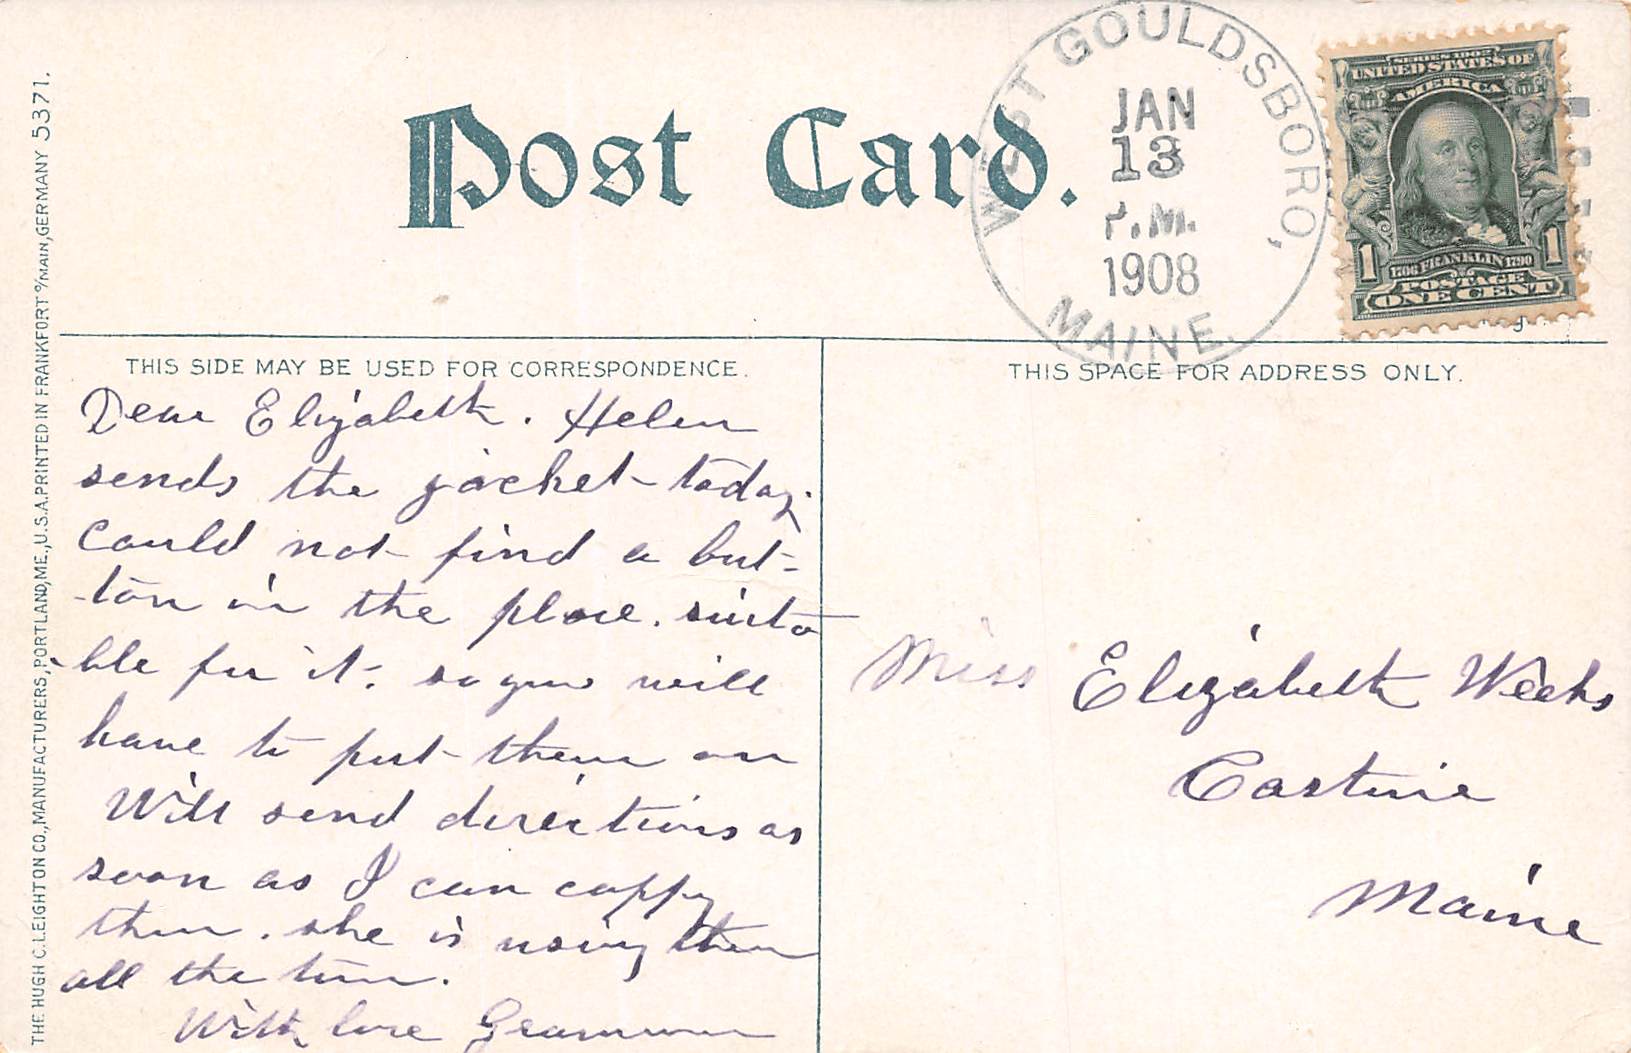 Post Card.
WEST GOULDSBORO, MAINE.
JAN
13
P.M.
1908
SERIES 1902
UNITED STATES OF
AMERICA
1706 FRANKLIN 1790
1 1
POSTAGE
ONE CENT
THE HUGH C. LEIGHTON CO., MANUFACTURERS, PORTLAND, ME., U.S.A. PRINTED IN FRANKFORT O/MAIN, GERMANY 5371.
THIS SIDE MAY BE USED FOR CORRESPONDENCE.
Dear Elizabeth. Helen
sends the jacket today.
Could not find a but-
-ton in the place. suita
-ble for it. so you will
have to put them on
Will send directions as
soon as I can coppy
them. she is using them
all the time.
With love Gramma
THIS SPACE FOR ADDRESS ONLY.
Miss Elizabeth Weeks
Castine
Maine